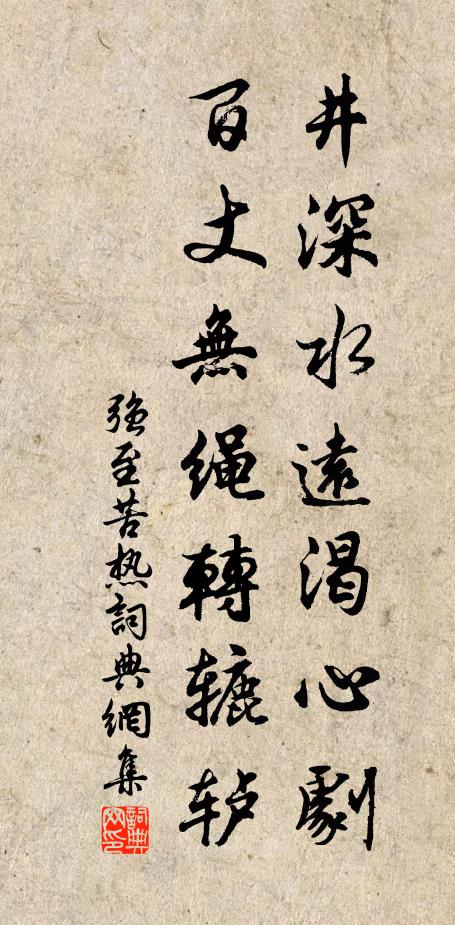 井深水遠渴心劇
百丈無绳轉辘轳
强至苦热詞典網集
詞典网印